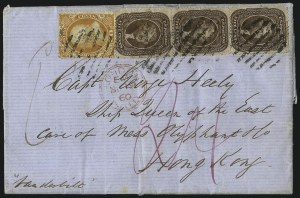 Capt George Heely
Ship Queen of the East
care of Mess Olyphant & Co
Hong Kong
"Vanderbilt"